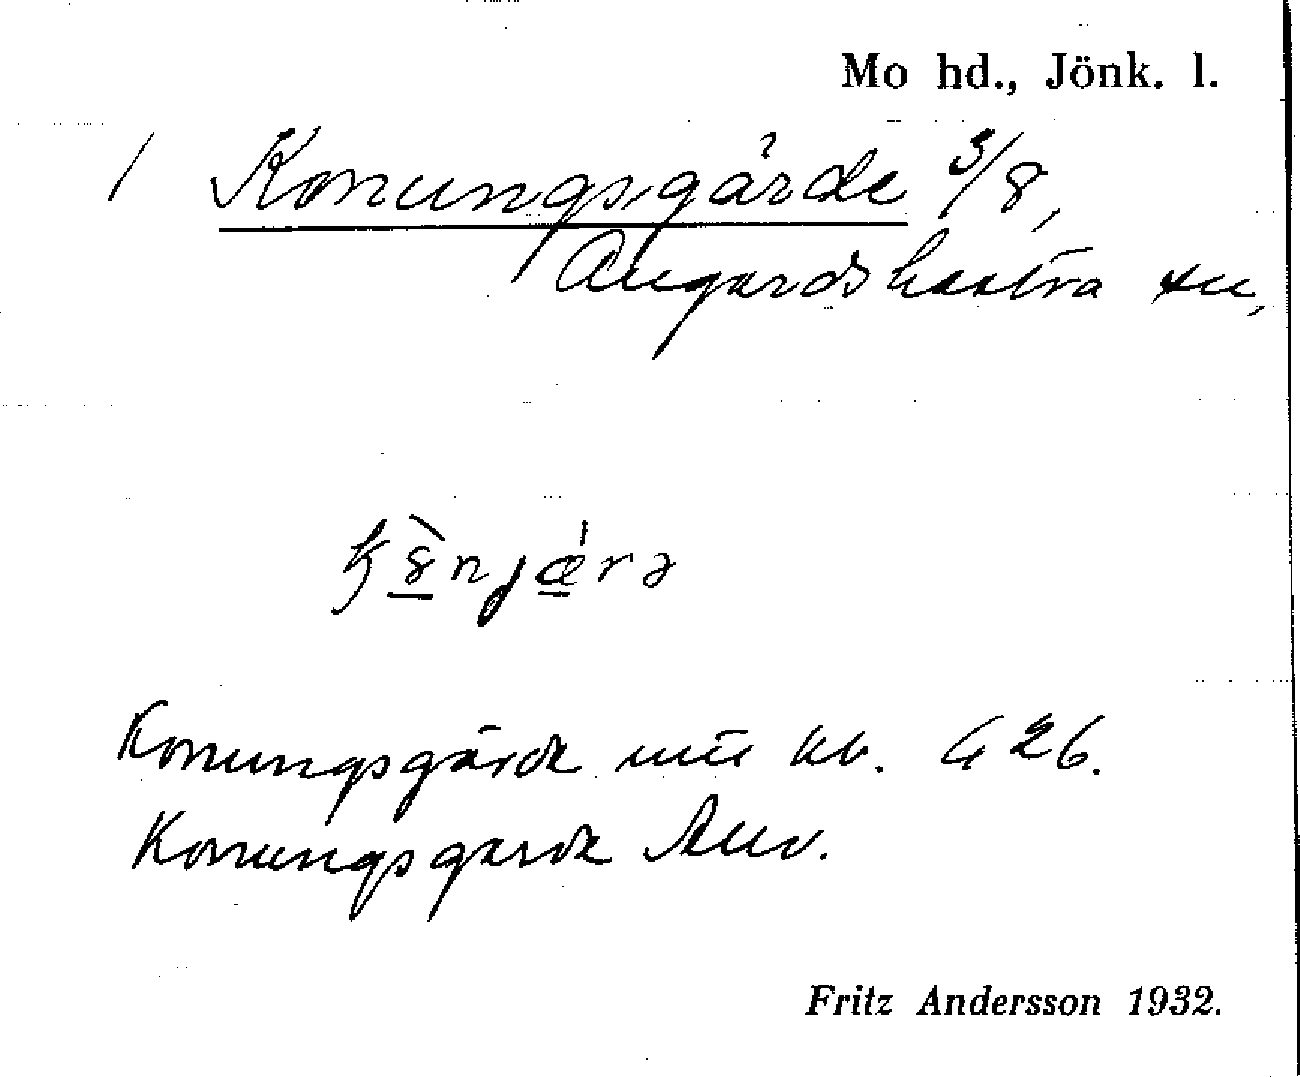 Mo hd., Jönk. l.
1 Konungsgärde 3/8,
Angerdshestra sn,
Konungsgärde kb. 426.
Konungsgärde
Fritz Andersson 1932.